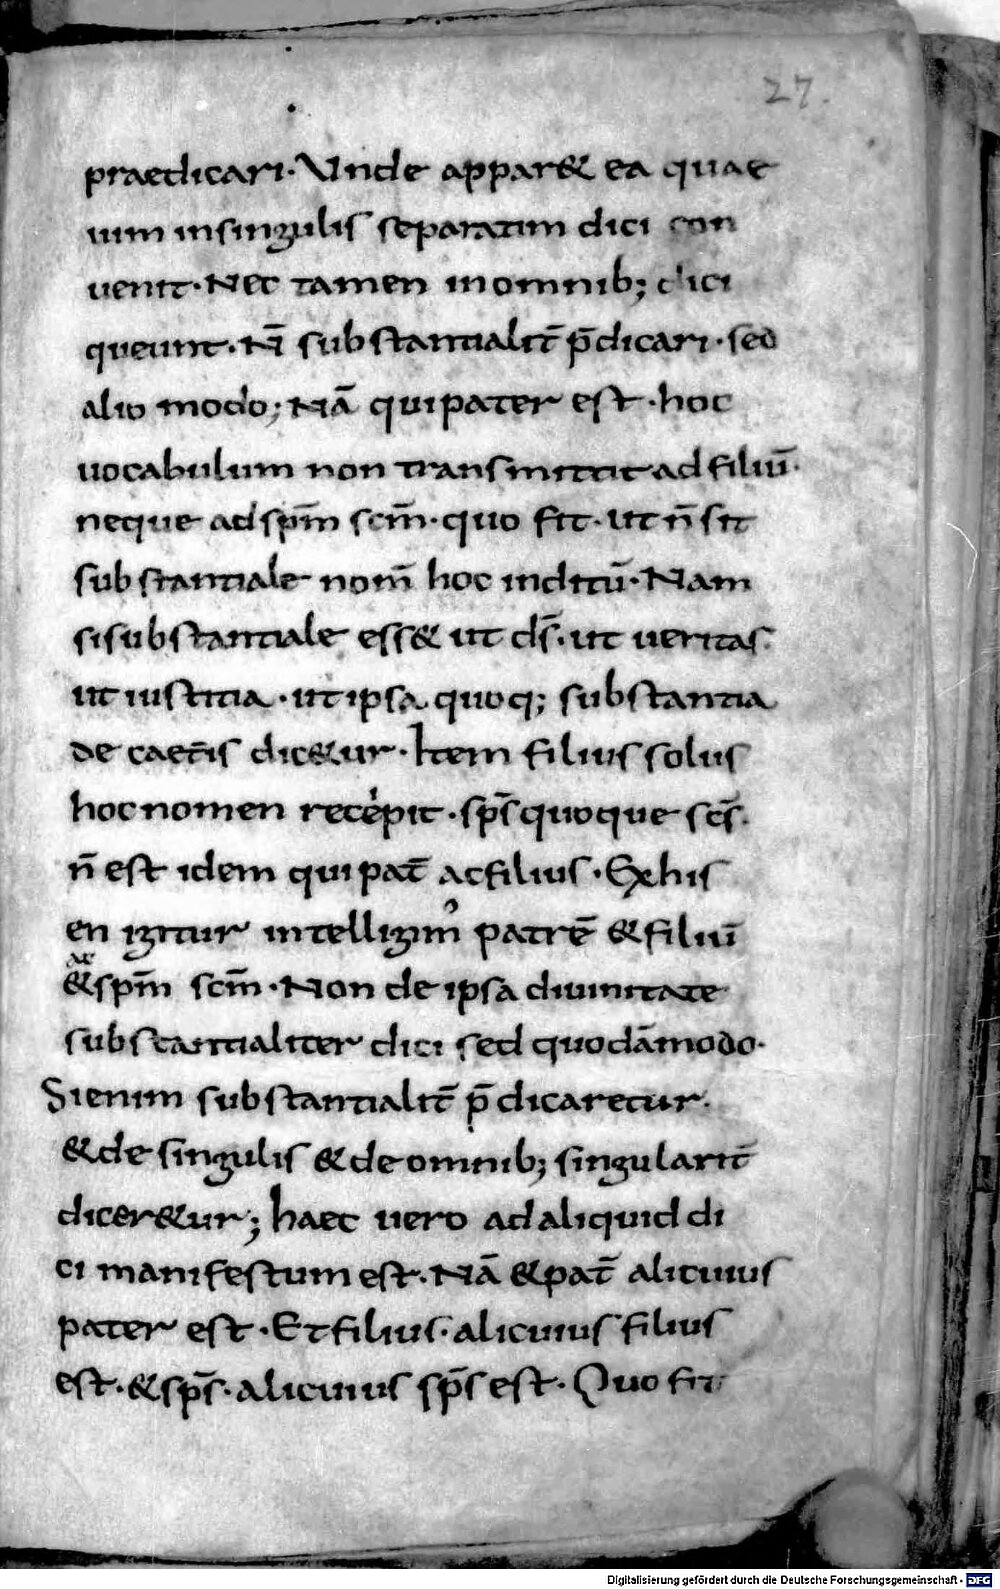 27.
praedicari. Unde appar& ea quae
cum insingulis separatim dici con
venit. Nec tamen inomnib; dici
queunt. N̄ substantialit̄ p̄dicari. sed
alio modo; Nā qui pater est. hoc
uocabulum non transmittit ad filiū.
neque ad sp̄m sc̄m. quo fit. ut n̄ sit
substantiale nom̄ hoc inditū. Nam
si substantiale ess& ut d̄s. ut ueritas.
ut iustitia. ut ipsa quoq; substantia
de caet̄is dic&ur. Item filius solus
hoc nomen recepit. sp̄s quoque sc̄s.
n̄ est idem qui pat̄ ac filius. Ex his
en igitur intelligim᾽ patrē & filiū
ac
& sp̄m sc̄m. Non de ipsa diuinitate
substantialiter dici sed quodāmodo.
Si enim substantialit̄ p̄dicaretur.
& de singulis & de omnib; singularit̄
dicer&ur; haec uero ad aliquid di
ci manifestum est. Nā & pat̄ alicuius
pater est. Et filius. alicuius filius
est. & sp̄s. alicuius sp̄s est. Quo fit
Digitalisierung gefördert durch die Deutsche Forschungsgemeinschaft - DFG